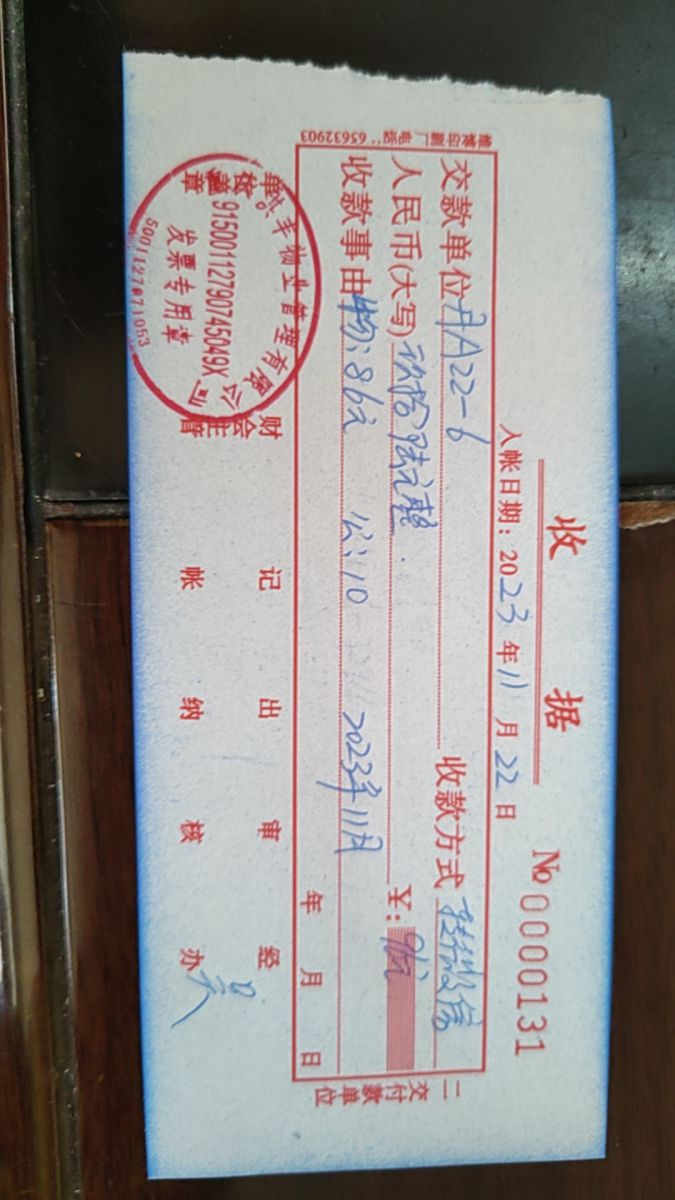 收 据
№ 0000131
入帐日期：2023年11月22日
交款单位 丹A22-6 收款方式 转微信
人民币(大写) 玖拾陆元整. ￥：96元
收款事由 物：86元 公：10 2023年11月
年 月 日
二交付款单位
维修印刷厂 电话：65632903
单位盖章
财会主管
记帐
出纳
审核
经办
丰物业管理有限公司
91500112790745049X
发票专用章
5001127071053